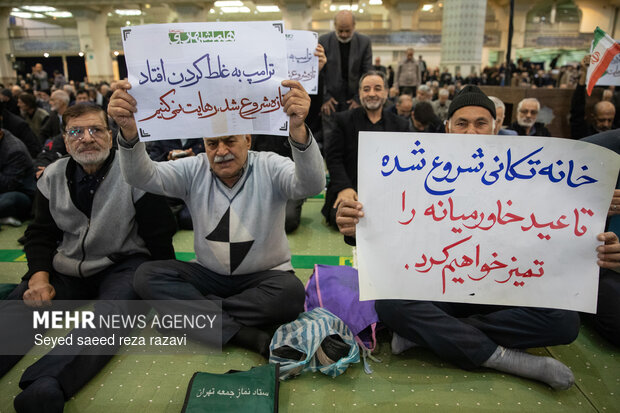 ترامپ به غلط کردن افتاد
تازه شروع شد، رهایت نمی کنیم
خانه تکانی شروع شده
تا عید خاورمیانه را
تمیز خواهیم کرد.
MEHR NEWS AGENCY
Seyed saeed reza razavi
ستاد نماز جمعه تهران